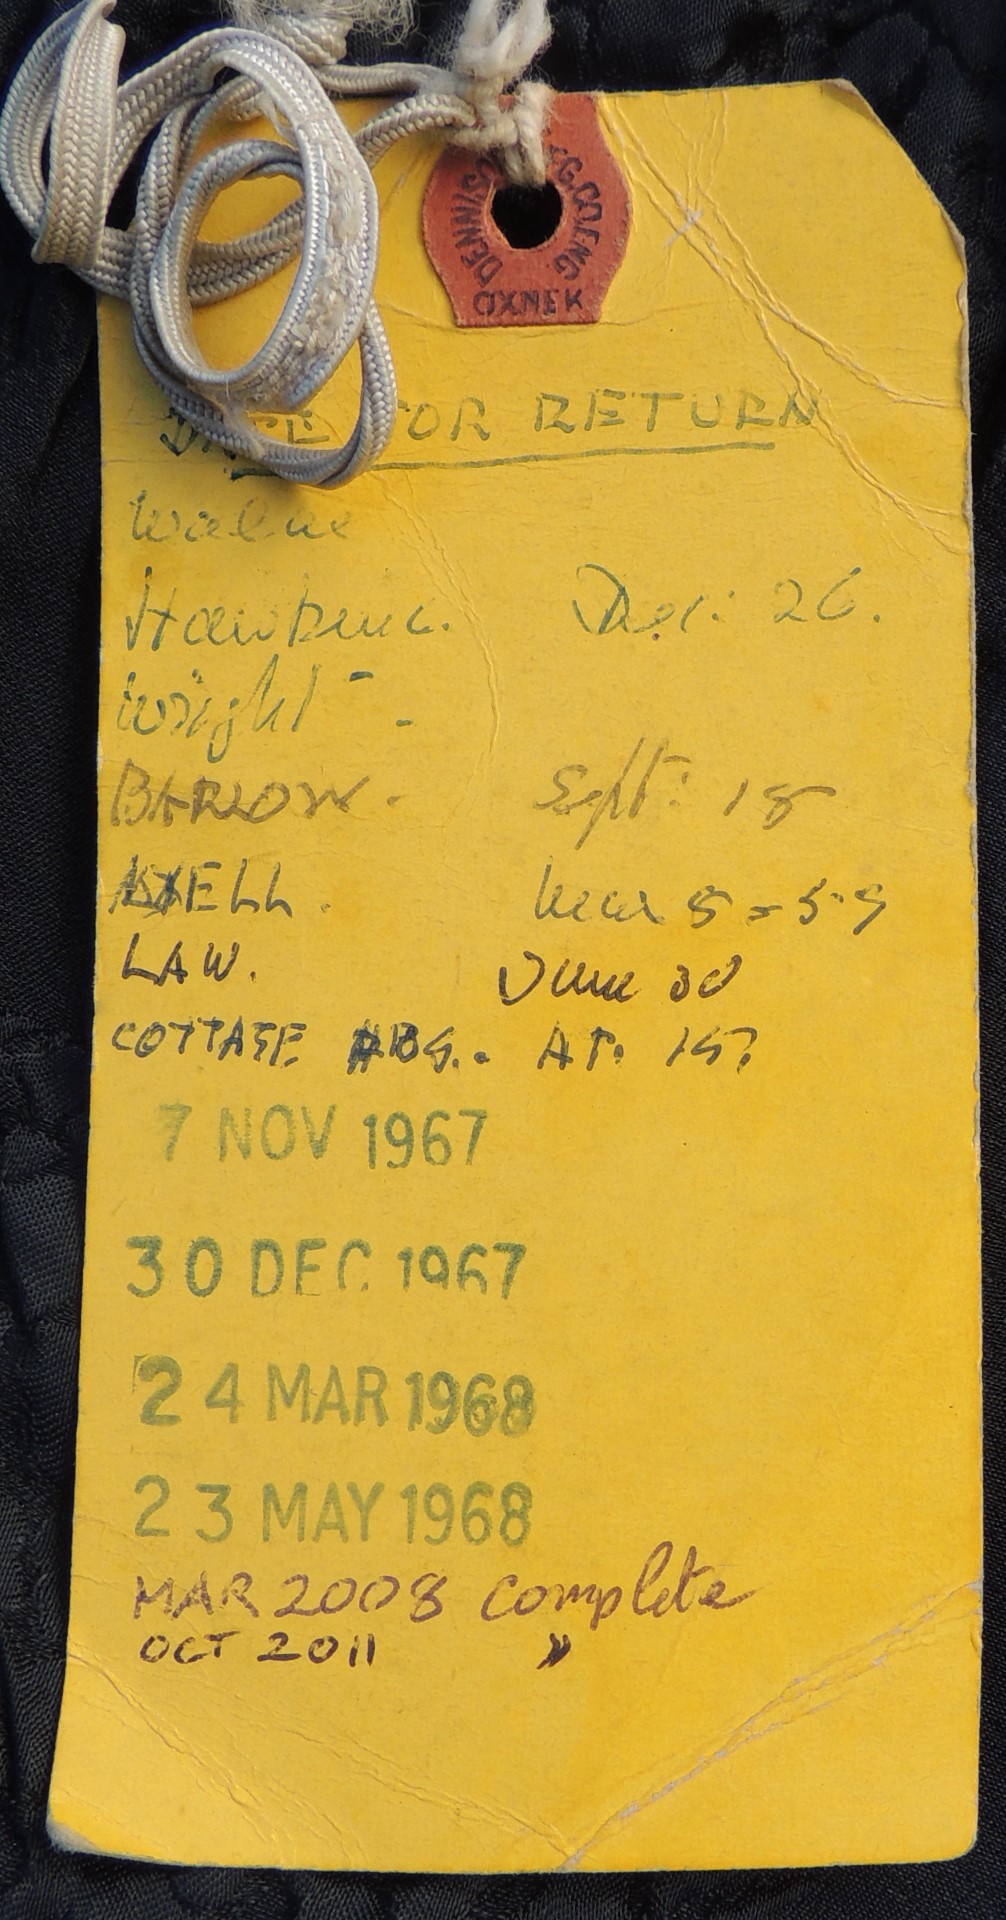 DENNISON MFG.CO.ENG.
OXNEK
DATE FOR RETURN
Dec: 26.
Wright -
BARLOW. Sept: 18
AXELL.
LAW. June 30
COTTAGE
7 NOV 1967
30 DEC 1967
24 MAR 1968
23 MAY 1968
MAR 2008 complete
OCT 2011 "